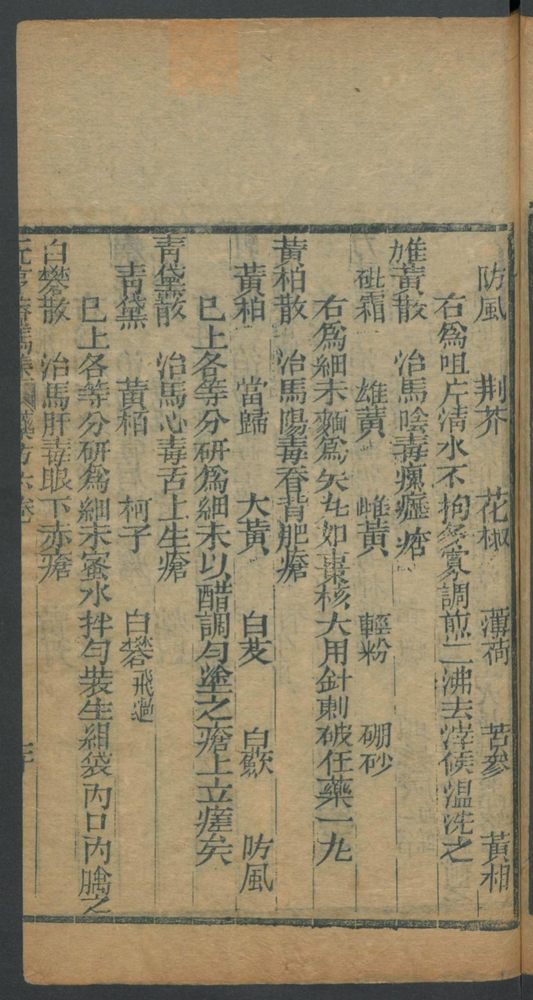 防風 荆芥 花椒 薄荷 苦參 黃相
右爲咀片清水不拘多寡調煎二沸去滓候溫洗之
雄黃散 治馬陰毒瘰癧瘡
砒霜 雄黃 雌黃 輕粉 硼砂
右爲細末麵爲矢丸如棗核大用針刺破任藥一丸
黃柏散 治馬陽毒脊背肥瘡
黃柏 當歸 大黃 白芨 白蘞 防風
已上各等分研爲細末以醋調勻塗之瘡上立瘥矣
青黛散 治馬心毒舌上生瘡
青黛 黃栢 柯子 白礬飛過
已上各等分研爲細末蜜水拌勻裝生絹袋內口內噙之
白礬散 治馬肝毒眼下赤瘡
元亨療馬集 藥方六卷